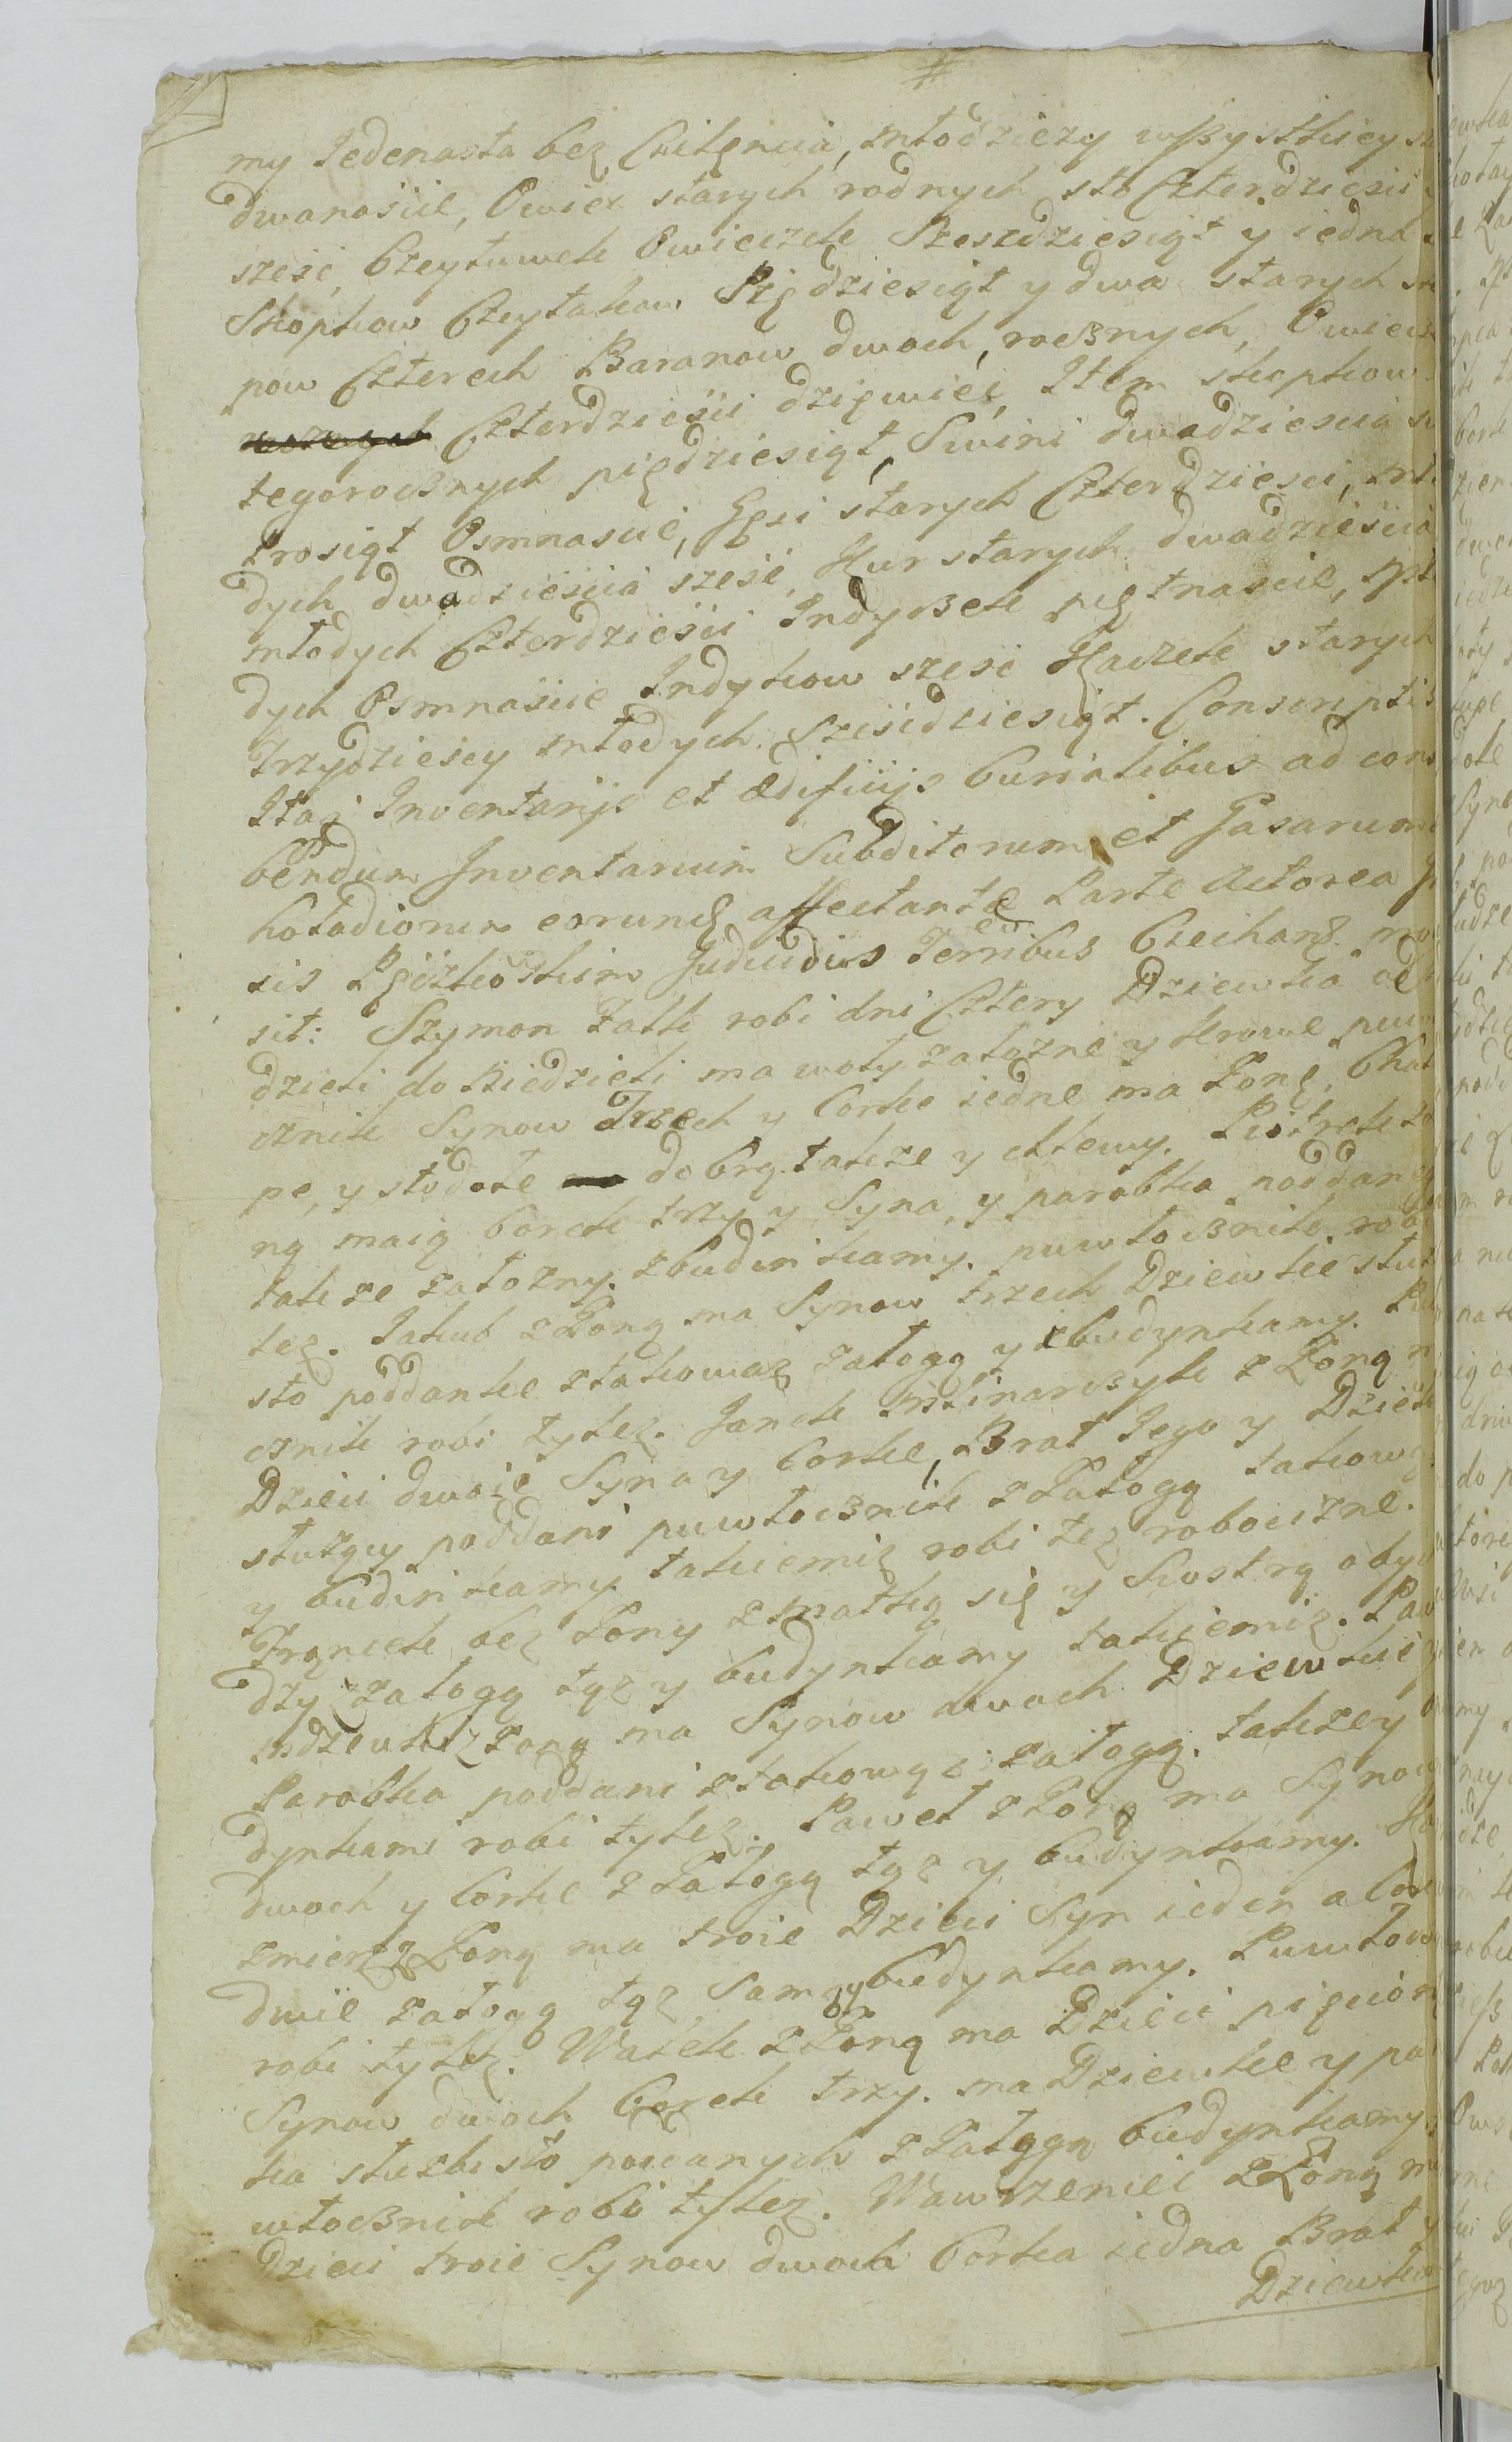 my Jedenasta bez Cielęcia, młodzieży wszystkiey
dwanascie, Owiec starych rodnych sto Czterdziesci
szesc, Czeytuwek Owieczek Szescdziesiąt y iedna
Skopkow Czeytakow Pięćdziesiąt y dwa starych
pow Czterech Baranow dwoch, rocznych, Owiecz
Czterdziesci dziewięc, Item skopkow
tegorocznych pięcdziesiąt, Swini dwadziescia
Prosiąt Osmnascie, Gęsi starych Czterdziesci, mło
dych dwadziescia szesc, Kur starych dwadziescia
młodych Czterdziesci Indyczek piętnascie, mło
dych Osmnascie Indykow szesc Kaczek starych
Trzydziescy młodych szescdziesiąt. Conscriptis
Itaq Inventarijs et ædificijs Curialibus ad con
bendum Inventarium Subditorum et Casarum
kotadiorum eorundq affectante Parte Actorea
sis Judicialis Terribus Ciechan
sit: Szymon Fatk robi dni Cztery Dziewka od
dzieli do Niedzieli ma woły załozne y krowe puw
cznik Synow Trzech y Corke iedne ma Zonę, Chału
pe, y stodołe dobrą takze y chlewy. Piotrek Zo
ną maią Corek trzy y Syna, y parobka poddan
takze załozny. zbudinkamy. puwłocznik robi
tez. Jakub z Zoną ma Synow trzech Dziewke słu
sto poddankę ztakowaz załogą y zbudynkamy. Puw
cznik robi tylez. Janek Młinarczyk z Zoną m
Dzieci dwoie Syna y Corke, Brat Jego y Dziew
słuzący poddani puwłocznik z Załogą takową
y budinkamy takiemiz robi tez robocizne.
Franek bez Zony z matką się y Siostrą oby
dzy załogą tąz y budynkamy takiemiz. Paw
zoną ma Synow dwoch Dziewkę
Parobka poddani z takową załogą. takzey bu
dynkami robi tylez. Paweł z Zoną ma Synow
dwoch y Corke z Załogą tąz y budynkamy. Ka
zmierz z Zoną ma troie Dzieci Syn ieden a Cor
dwie załogą tąz samą y budynkamy. Puwłocz
robi tylez. Wałek z Zoną ma Dzieci pięcior
Synow dwoch Corek trzy. ma Dziewke y paro
ka z Załogą budynkamy
włocznik robi tylez. Wawrzeniec z Zoną m
Dzieci troie Synow dwoch Corka iedna Brat y
Dziewka